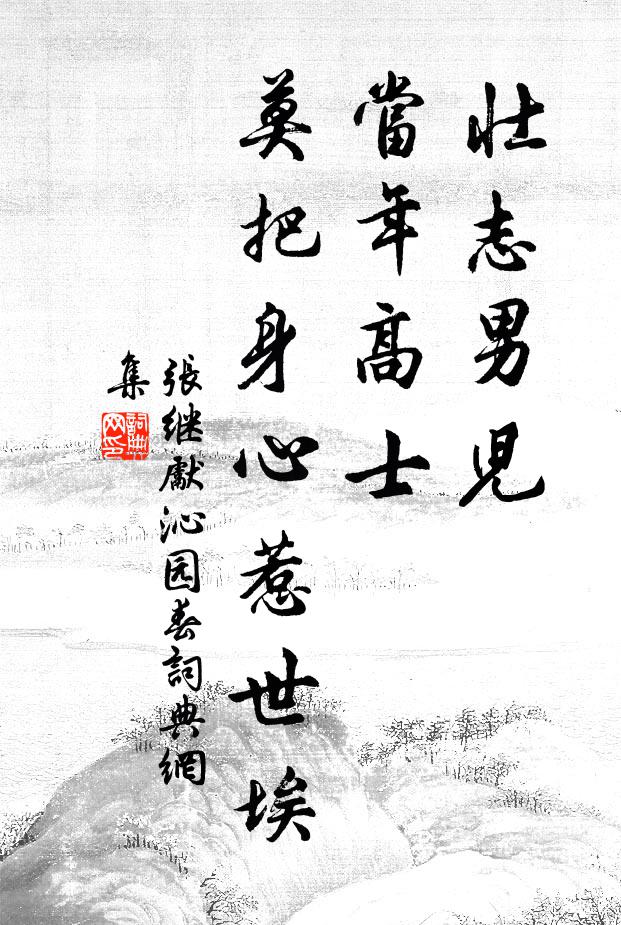 壮志男児
當年高士
莫把身心惹世埃
張継獻沁园春詞典網
集
詞典网印